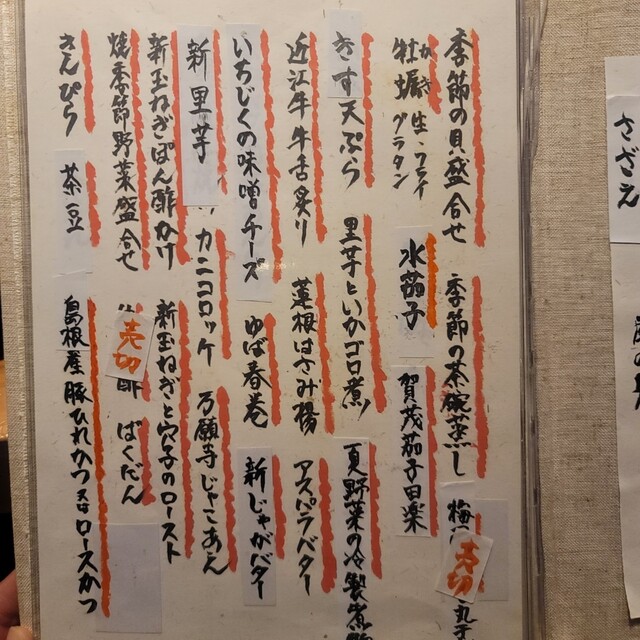 季節の貝盛合せ
季節の茶碗蒸し
梅
売切
かき
牡蠣 生・フライ
グラタン
水茄子
賀茂茄子田楽
きす天ぷら
里芋といかゴロ煮
夏野菜の冷製煮
近江牛牛舌炙り
蓮根はさみ揚
アスパラバター
いちじくの味噌チーズ
ゆば春巻
新じゃがバター
新里芋
カニコロッケ
万願寺じゃこあん
新玉ねぎぽん酢かけ
新玉ねぎと穴子のロースト
焼季節野菜盛合せ
売切
酢
ばくだん
きんぴら
茶豆
島根産豚ひれかつ
ロースかつ
さざえ